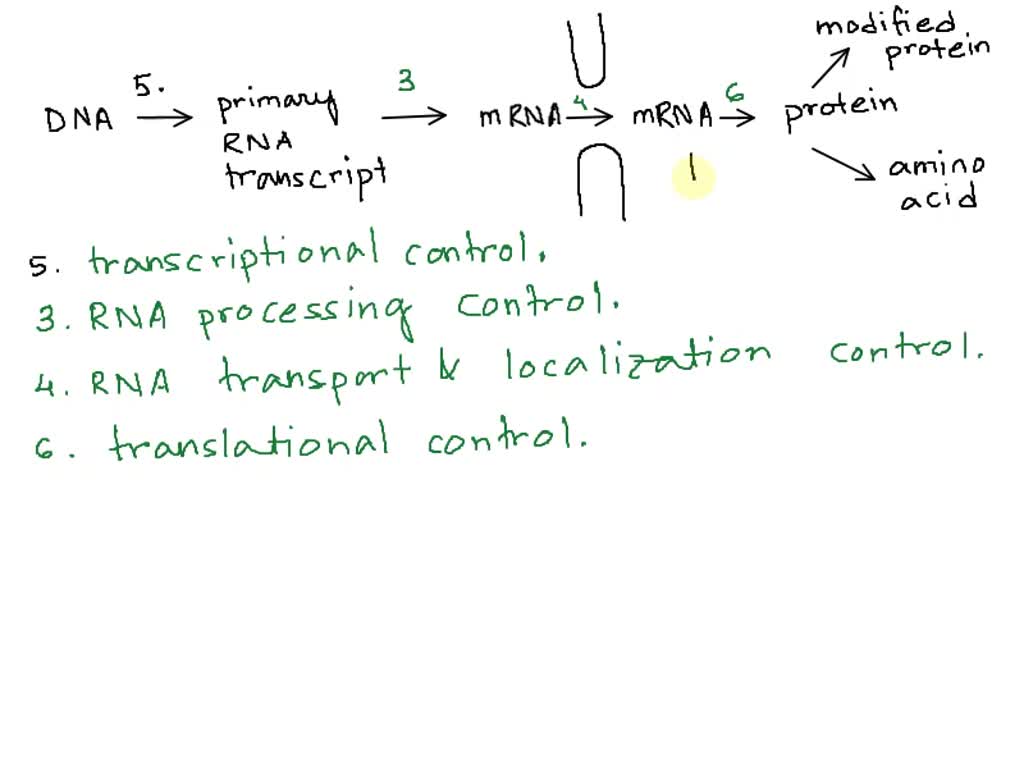 modified
protein
5.
3
4
6
DNA → primary → mRNA → mRNA → protein
RNA
transcript
amino
acid
5. transcriptional control.
3. RNA processing control.
4. RNA transport & localization control.
6. translational control.